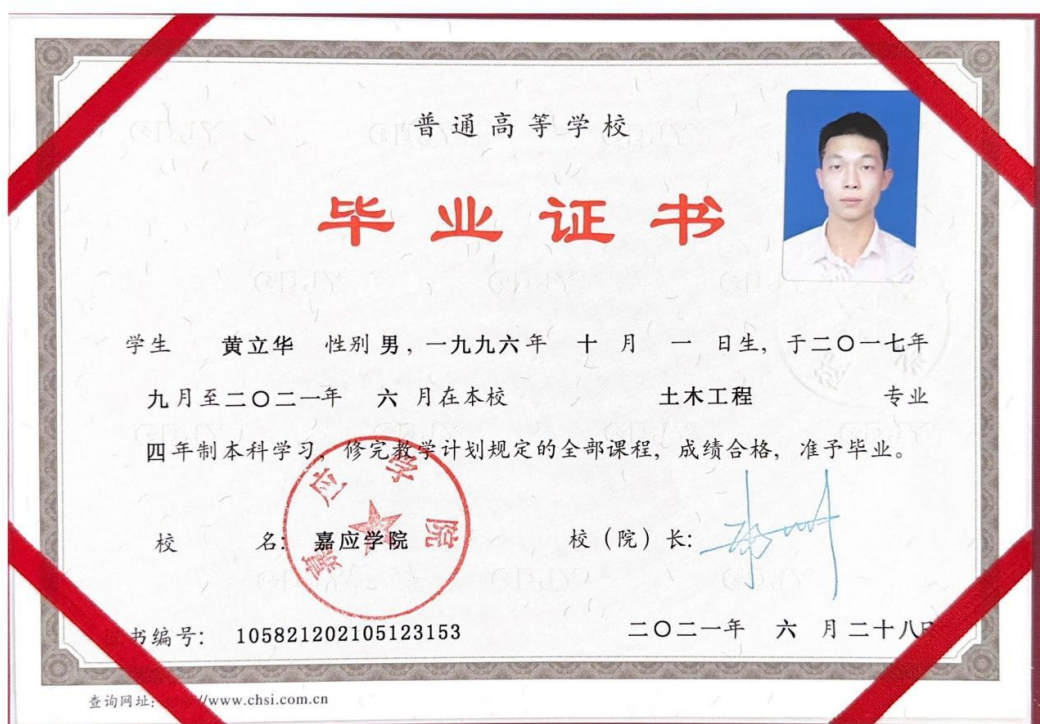 普通高等学校
毕业证书
学生 黄立华 性别 男，一九九六年 十 月 一 日生，于二〇一七年
九月至二〇二一年 六 月在本校 土木工程 专业
四年制本科学习，修完教学计划规定的全部课程，成绩合格，准予毕业。
校 名：嘉应学院 校（院）长：
嘉应学院
书编号：105821202105123153 二〇二一年 六 月二十八日
查询网址： //www.chsi.com.cn